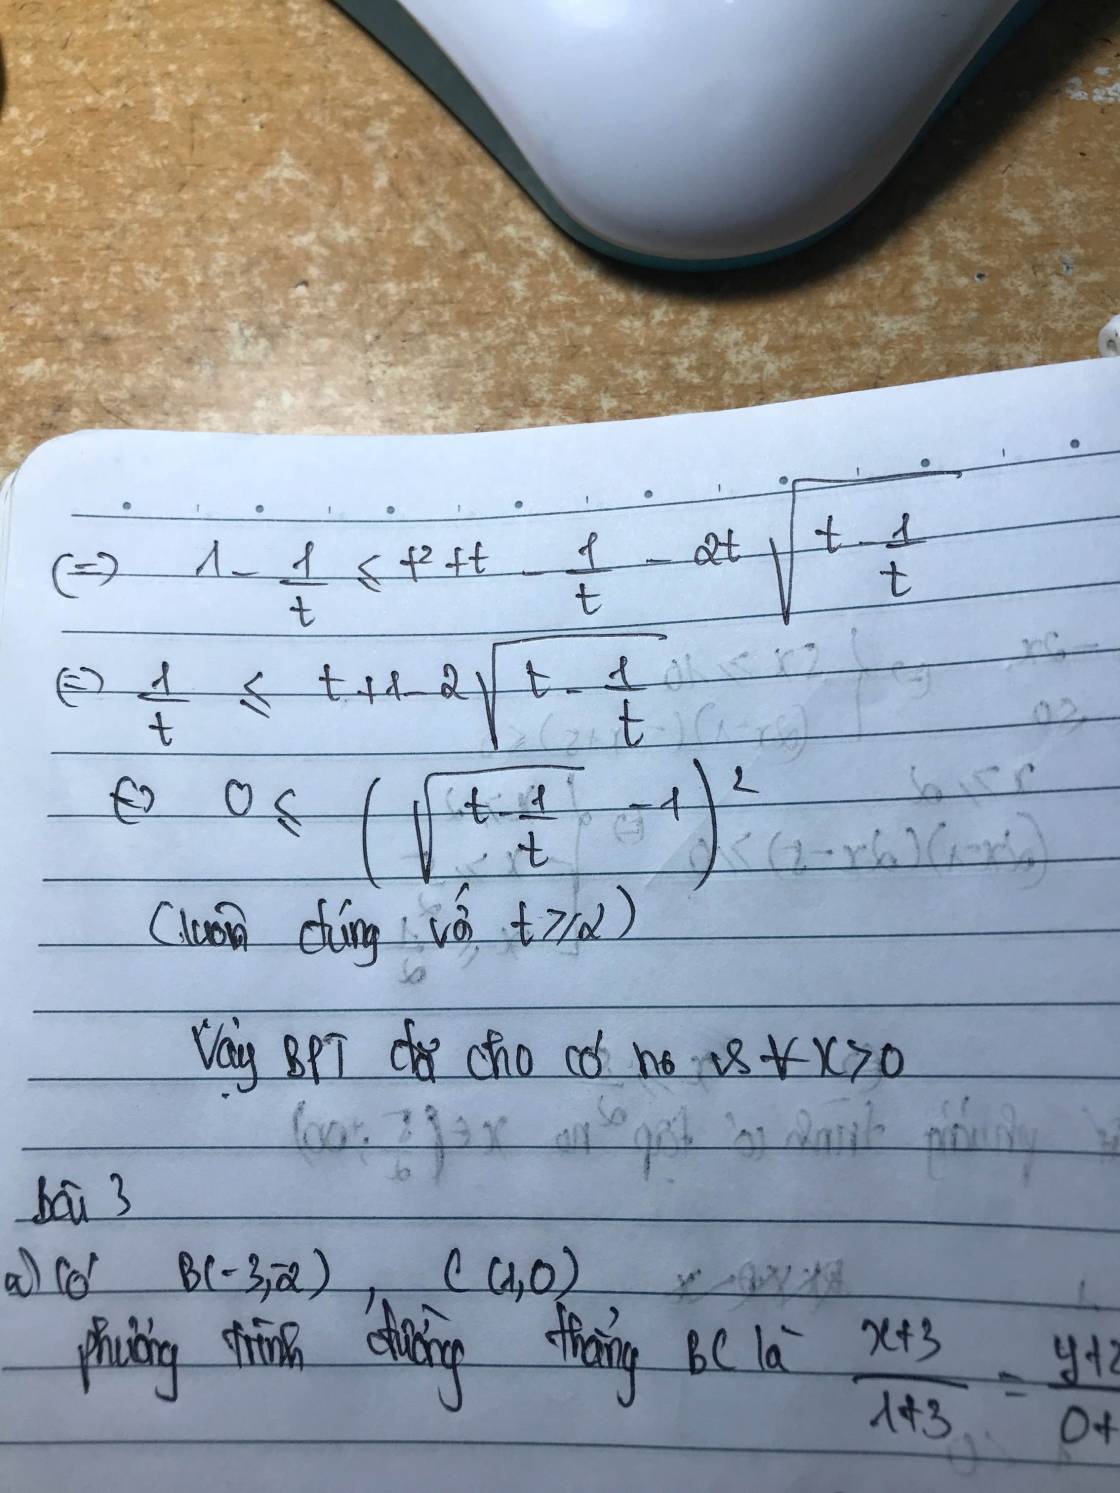 (=) 1 - 1/t ≤ t² + t - 1/t - 2t√(t - 1/t)
(=) 1/t ≤ t + 1 - 2√(t - 1/t)
(=) 0 ≤ (√(t - 1/t) - 1)²
(luôn đúng với t ≥ 2)
Vậy BPT đã cho có no vs ∀ x > 0
Bài 3
a) Có B(-3,-2), C(1,0)
phương trình đường thẳng BC là (x+3)/(1+3) = (y+2)/(0+